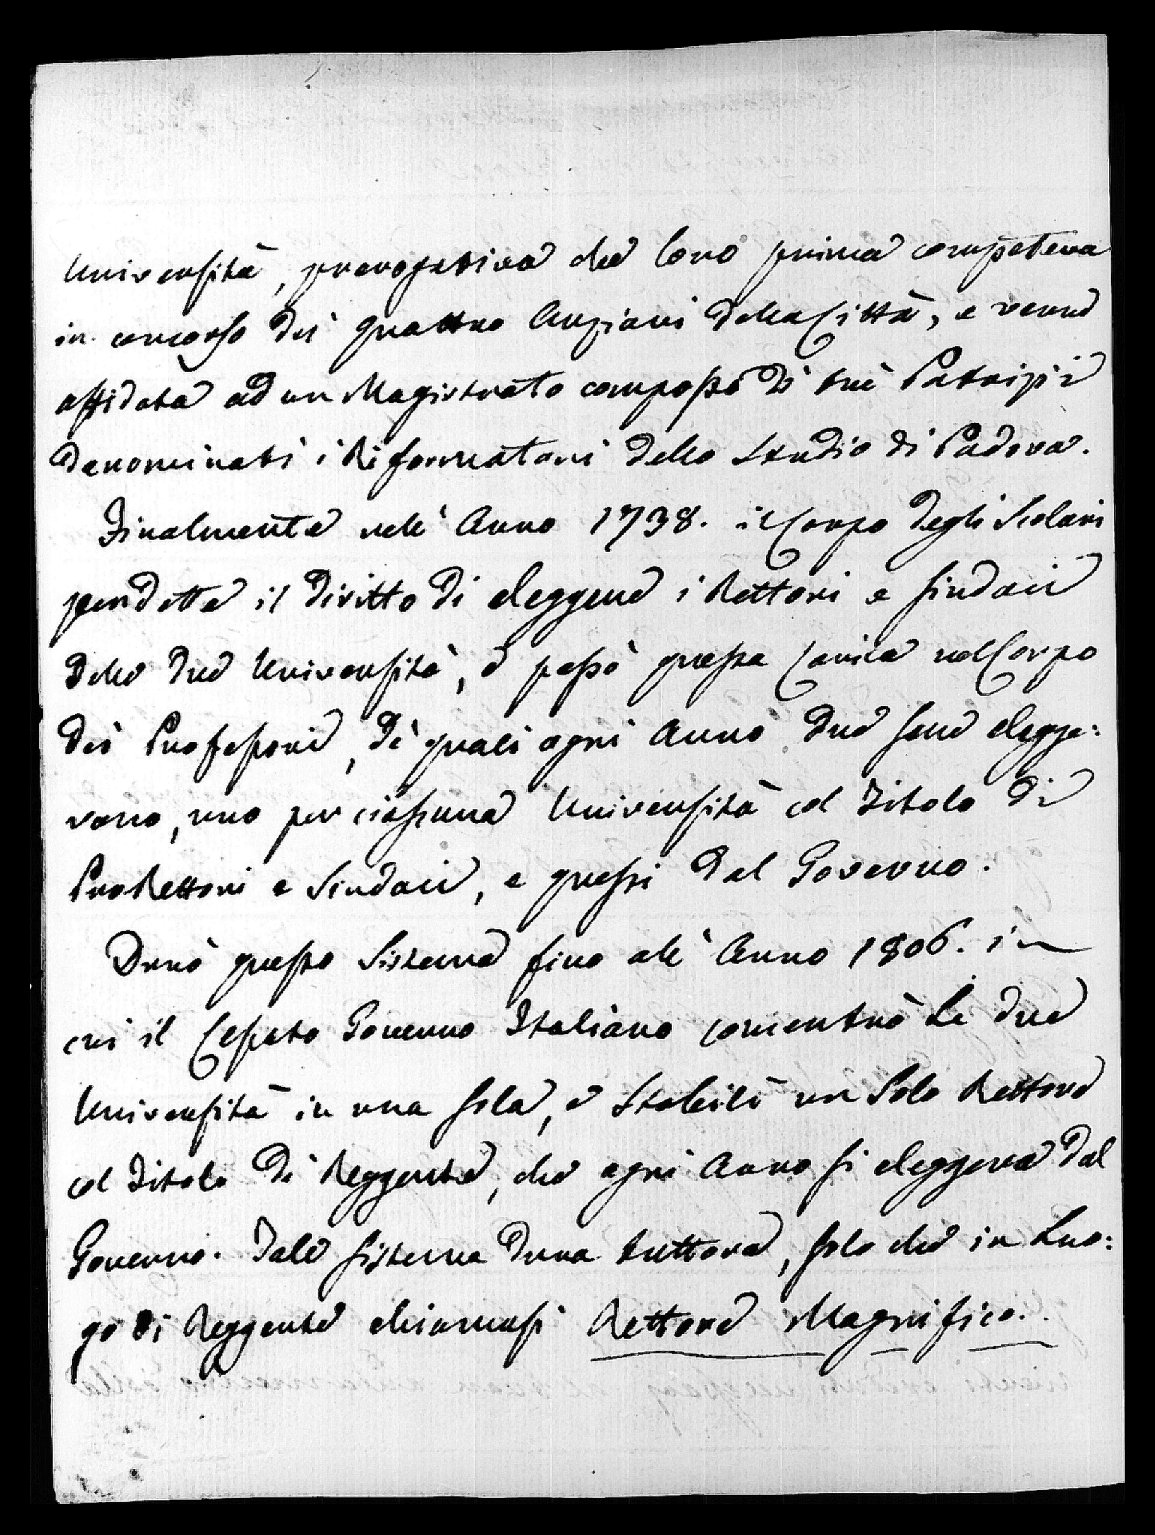 Università, prerogativa che loro prima competeva
in concorso dei quattro Anziani della Città, e venne
affidata ad un Magistrato composto di trè Patrizi
denominati i Riformatori dello Studio di Padova.
Finalmente nell' Anno 1738. il Corpo degli Scolari
perdette il diritto di eleggere i Rettori e Sindaci
delle due Università, e passò questa Carica nel Corpo
dei Professori, dè quali ogni Anno due sene elegge:
vano, uno per ciascuna Università col Titolo di
ProRettori e Sindaci, e questi dal Governo.
Durò questo Sistema fino all' Anno 1806. in
cui il Cessato Governo Italiano concentrò le due
Università in una sola, e stabilì un Solo Rettore
col Titolo di Reggente, che ogni Anno si eleggeva dal
Governo. Tale sistema dura tuttora, solo che in Luo:
go di Reggente chiamasi Rettore Magnifico.